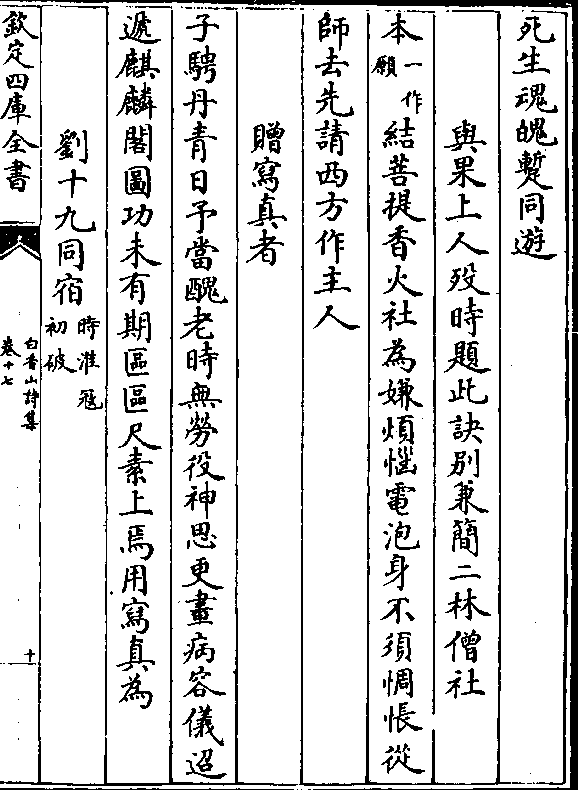 死生魂魄暫同遊
與果上人歿時題此訣別兼簡二林僧社
本一作願結菩提香火社為嫌煩惱電泡身不須惆悵從
師去先請西方作主人
贈寫真者
子騁丹青日予當醜老時無勞役神思更畫病容儀迢
遞麒麟閣圖功未有期區區尺素上焉用寫真為
劉十九同宿時淮寇初破
欽定四庫全書
白香山詩集
卷十七
十